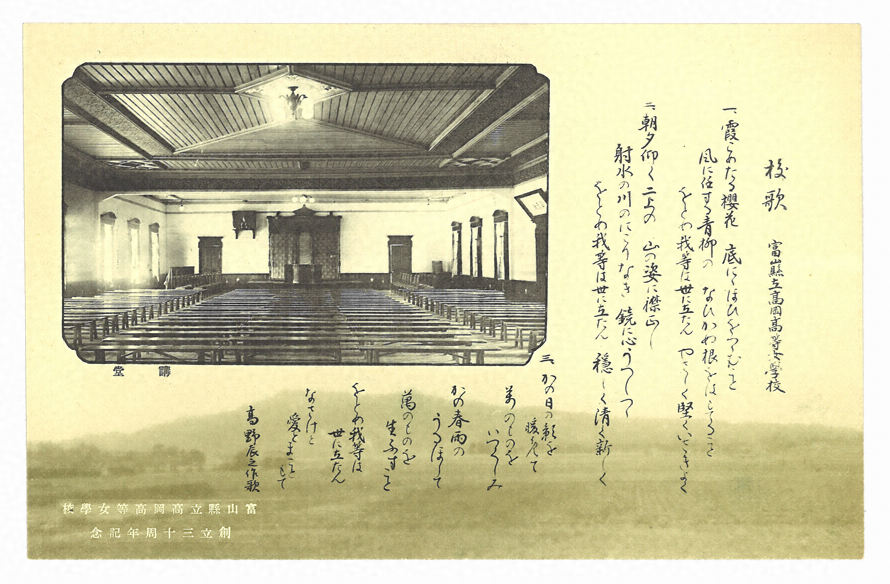 校歌
富山縣立高岡高等女學校
一、霞わたる櫻花 底ににほひをつゝむごと
風に任する青柳の なびかぬ根をはしるごと
をとめ我等は世に立たん やさしく堅くいときよく
二、朝夕仰ぐ二上の 山の姿に襟正し
射水の川のにごりなき 鏡に心うつしつゝ
をとめ我等は世に立たん 穏しく清く新しく
三、かの日の影を
暖めて
萬のものを
いつくしみ
かの春雨の
うるほして
萬のものを
生ふすごと
をとめ我等は
世に立たん
なさけと
愛とまことをもて
高野辰之作歌
講堂
富山縣立高岡高等女學校
創立三十周年記念